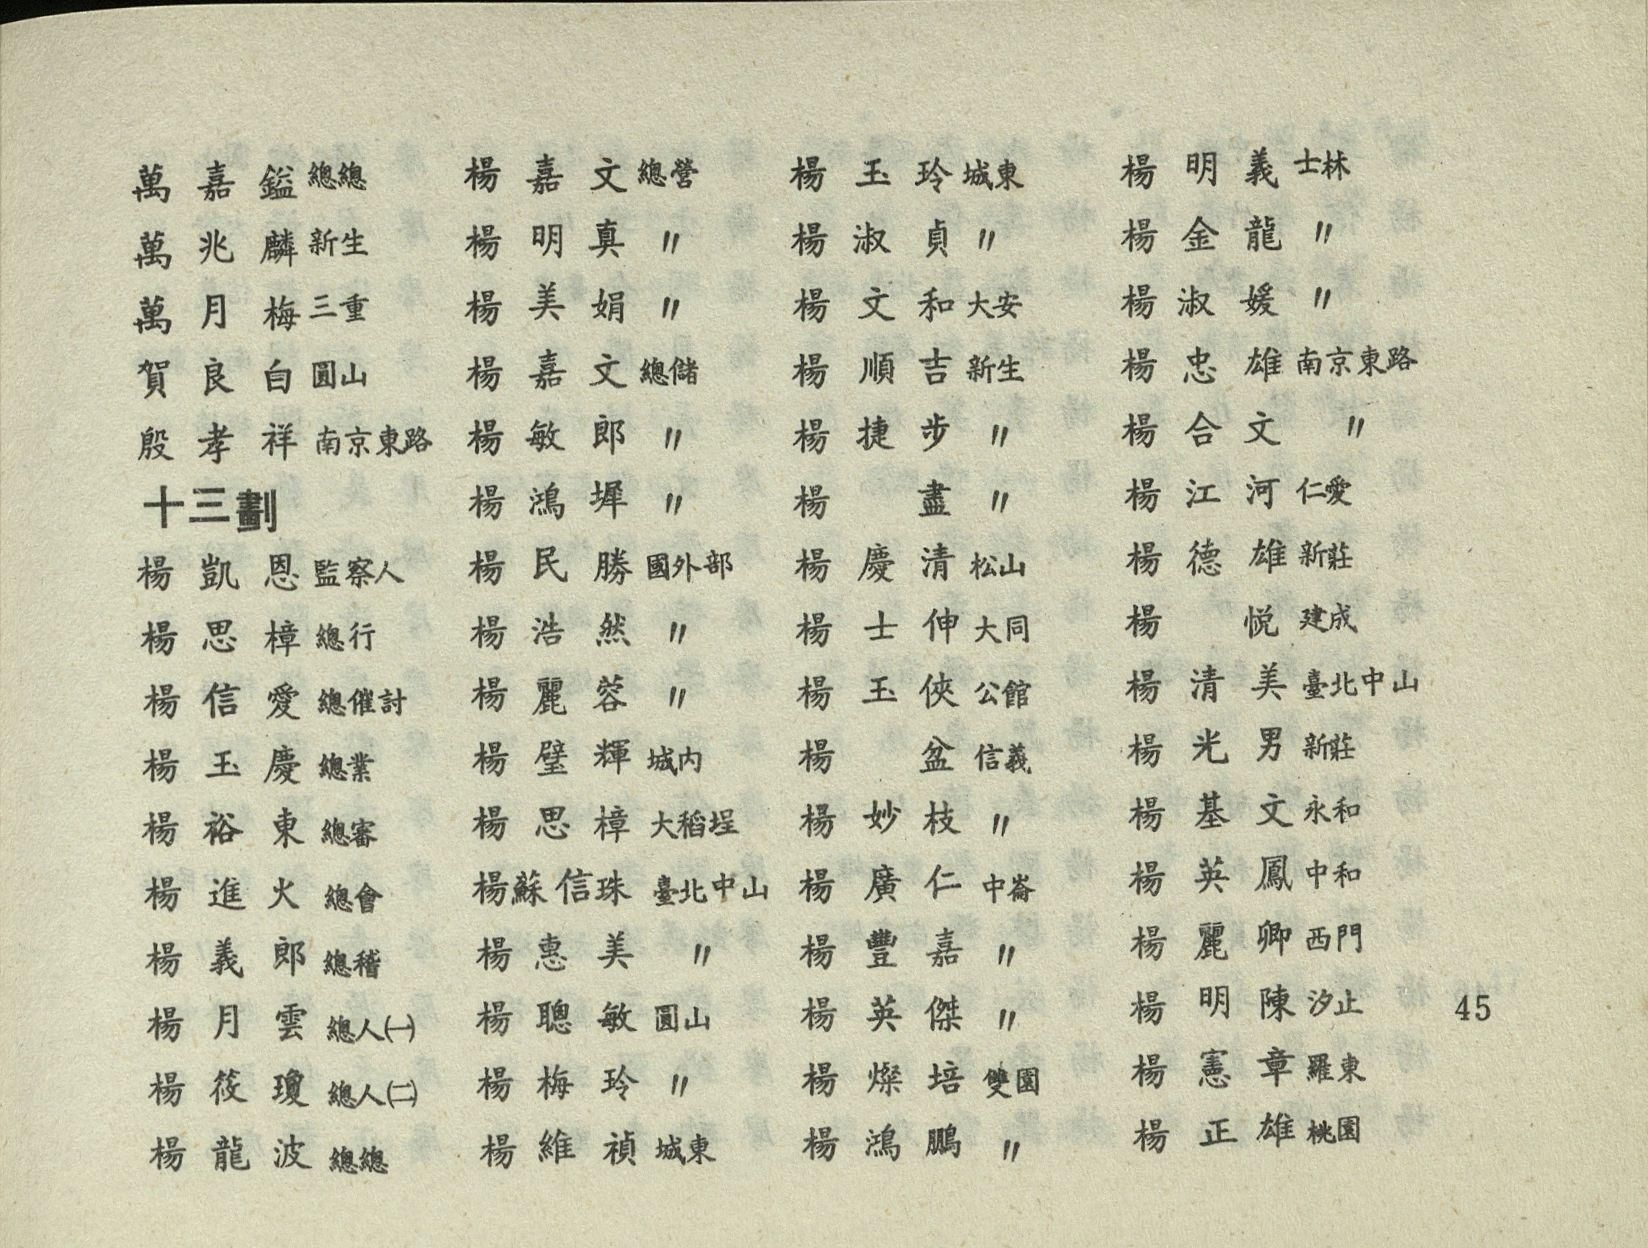 萬嘉鎰 總總
萬兆麟 新生
萬月梅 三重
賀良白 圓山
殷孝祥 南京東路
十三劃
楊凱恩 監察人
楊思樟 總行
楊信愛 總催討
楊玉慶 總業
楊裕東 總審
楊進火 總會
楊義郎 總稽
楊月雲 總人㈠
楊筱瓊 總人㈡
楊龍波 總總
楊嘉文 總營
楊明真 〃
楊美娟 〃
楊嘉文 總儲
楊敏郎 〃
楊鴻墀 〃
楊民勝 國外部
楊浩然 〃
楊麗蓉 〃
楊璧輝 城內
楊思樟 大稻埕
楊蘇信珠 臺北中山
楊惠美 〃
楊聰敏 圓山
楊梅玲 〃
楊維禎 城東
楊玉玲 城東
楊淑貞 〃
楊文和 大安
楊順吉 新生
楊捷步 〃
楊盡 〃
楊慶清 松山
楊士伸 大同
楊玉俠 公館
楊盆 信義
楊妙枝 〃
楊廣仁 中崙
楊豐嘉 〃
楊英傑 〃
楊燦培 雙園
楊鴻鵬 〃
楊明義 士林
楊金龍 〃
楊淑媛 〃
楊忠雄 南京東路
楊合文 〃
楊江河 仁愛
楊德雄 新莊
楊悦 建成
楊清美 臺北中山
楊光男 新莊
楊基文 永和
楊英鳳 中和
楊麗卿 西門
楊明陳 汐止
楊憲章 羅東
楊正雄 桃園
45